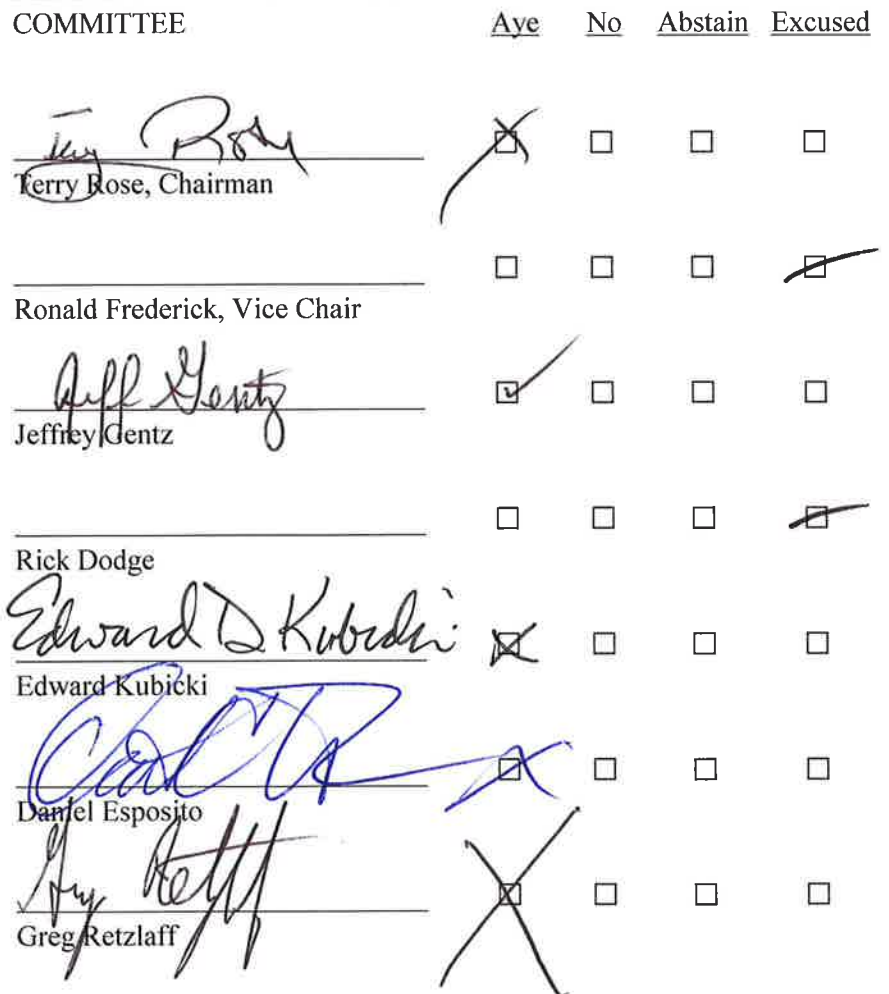 COMMITTEE Aye No Abstain Excused
Terry Rose
Terry Rose, Chairman
Ronald Frederick, Vice Chair
Jeff Gentz
Jeffrey Gentz
Rick Dodge
Edward D Kubicki
Edward Kubicki
Daniel Esposito
Greg Retzlaff
Greg Retzlaff